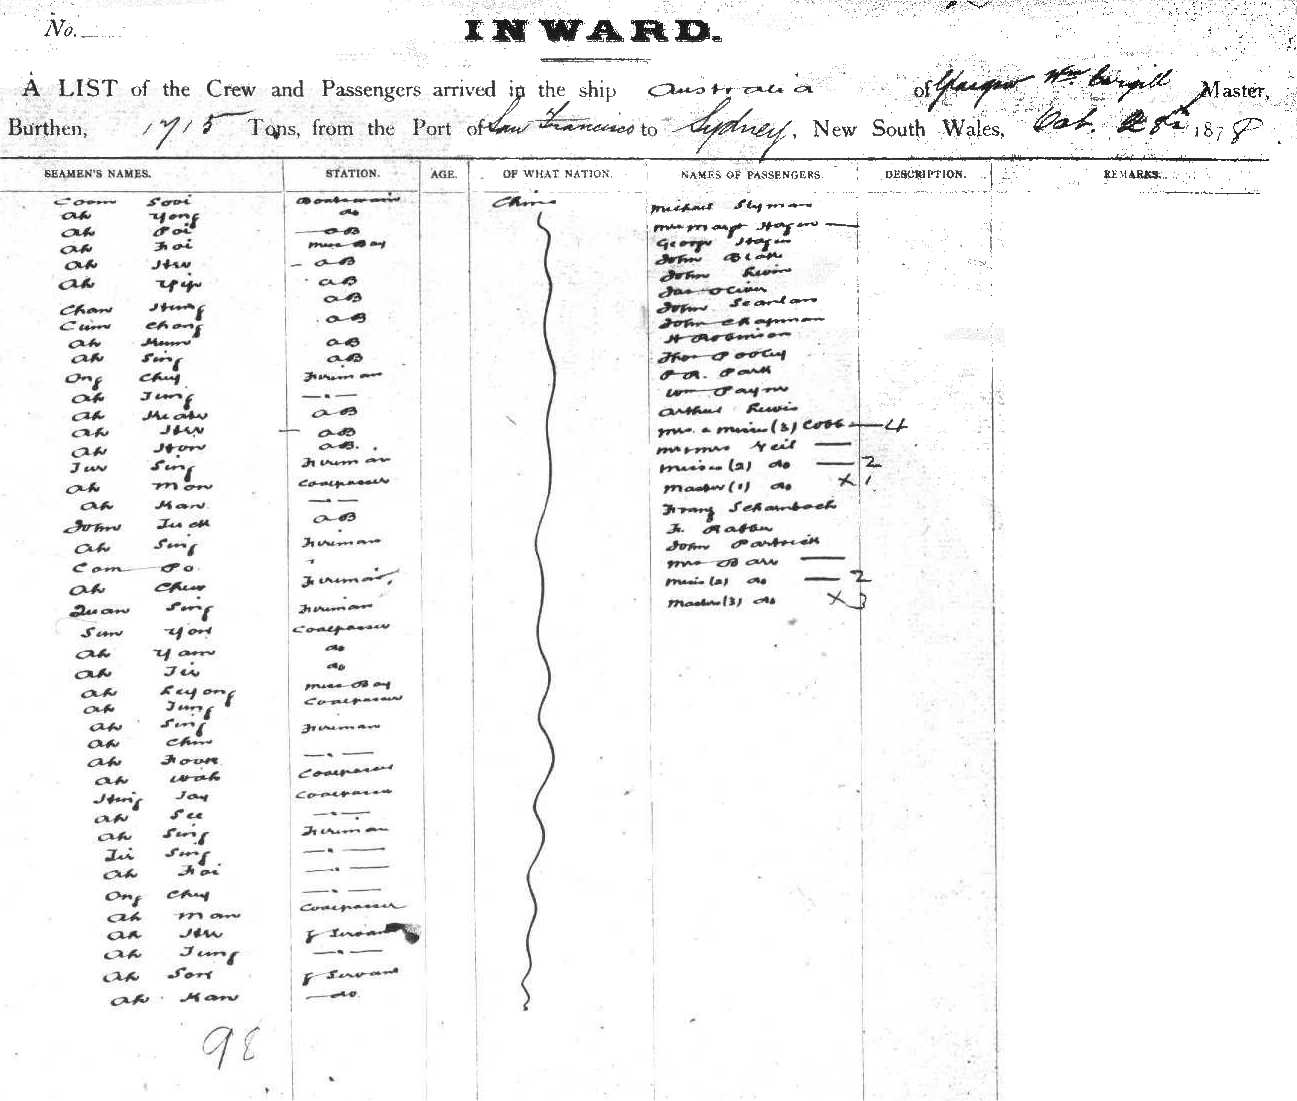 No.
INWARD.
A LIST of the Crew and Passengers arrived in the ship Australia of Glasgow Wm Cargill Master,
Burthen, 1715 Tons, from the Port of San Francisco to Sydney, New South Wales, Oct. 1878
SEAMEN'S NAMES. STATION. AGE. OF WHAT NATION. NAMES OF PASSENGERS. DESCRIPTION. REMARKS.
Coom Sooi Boatswain China Michael Slyman
Ah Yong do Mrs Margt Hagen —
Ah Poi AB George Hagen
Ah Koi Mess Boy John Black
Ah Hee — AB John Lewin
Ah Yip AB
Chan Hung AB John Scanlan
Cum Chong AB John Chapman
Ah AB H Robinson
Ah Sing AB Thos Pooley
Ong Chuy Fireman P.R. Park
Ah Fung — " — Wm Payne
Ah AB Arthur Lewis
Ah Hee — AB Mrs. & Misses (3) Cobb — 4
Ah Hon AB. Mr & Mrs Neil —
Sing Fireman Misses (2) do — 2
Ah Mon Coalpasser Master (1) do x 1
Ah Kan — " — Franz Scharnbach
John Tuck AB F.
Ah Sing Fireman John Partrick
Com Po " Mrs Barr —
Ah Chew Fireman Misses (2) do — 2
Quan Sing Fireman Masters (3) do x 3
Sun You Coalpasser
Ah Yam do
Ah do
Ah Leyong Mess Boy
Ah Fung Coalpasser
Ah Sing Fireman
Ah Chin
Ah Fook — " —
Ah Wah Coalpasser
Hing Jay Coalpasser
Ah See — " —
Ah Sing Fireman
Sing — " —
Ah Koi — " —
Ong Chuy — " —
Ah Man Coalpasser
Ah Hee Servant
Ah Fung — " —
Ah Son Servant
Ah Kan — do
98